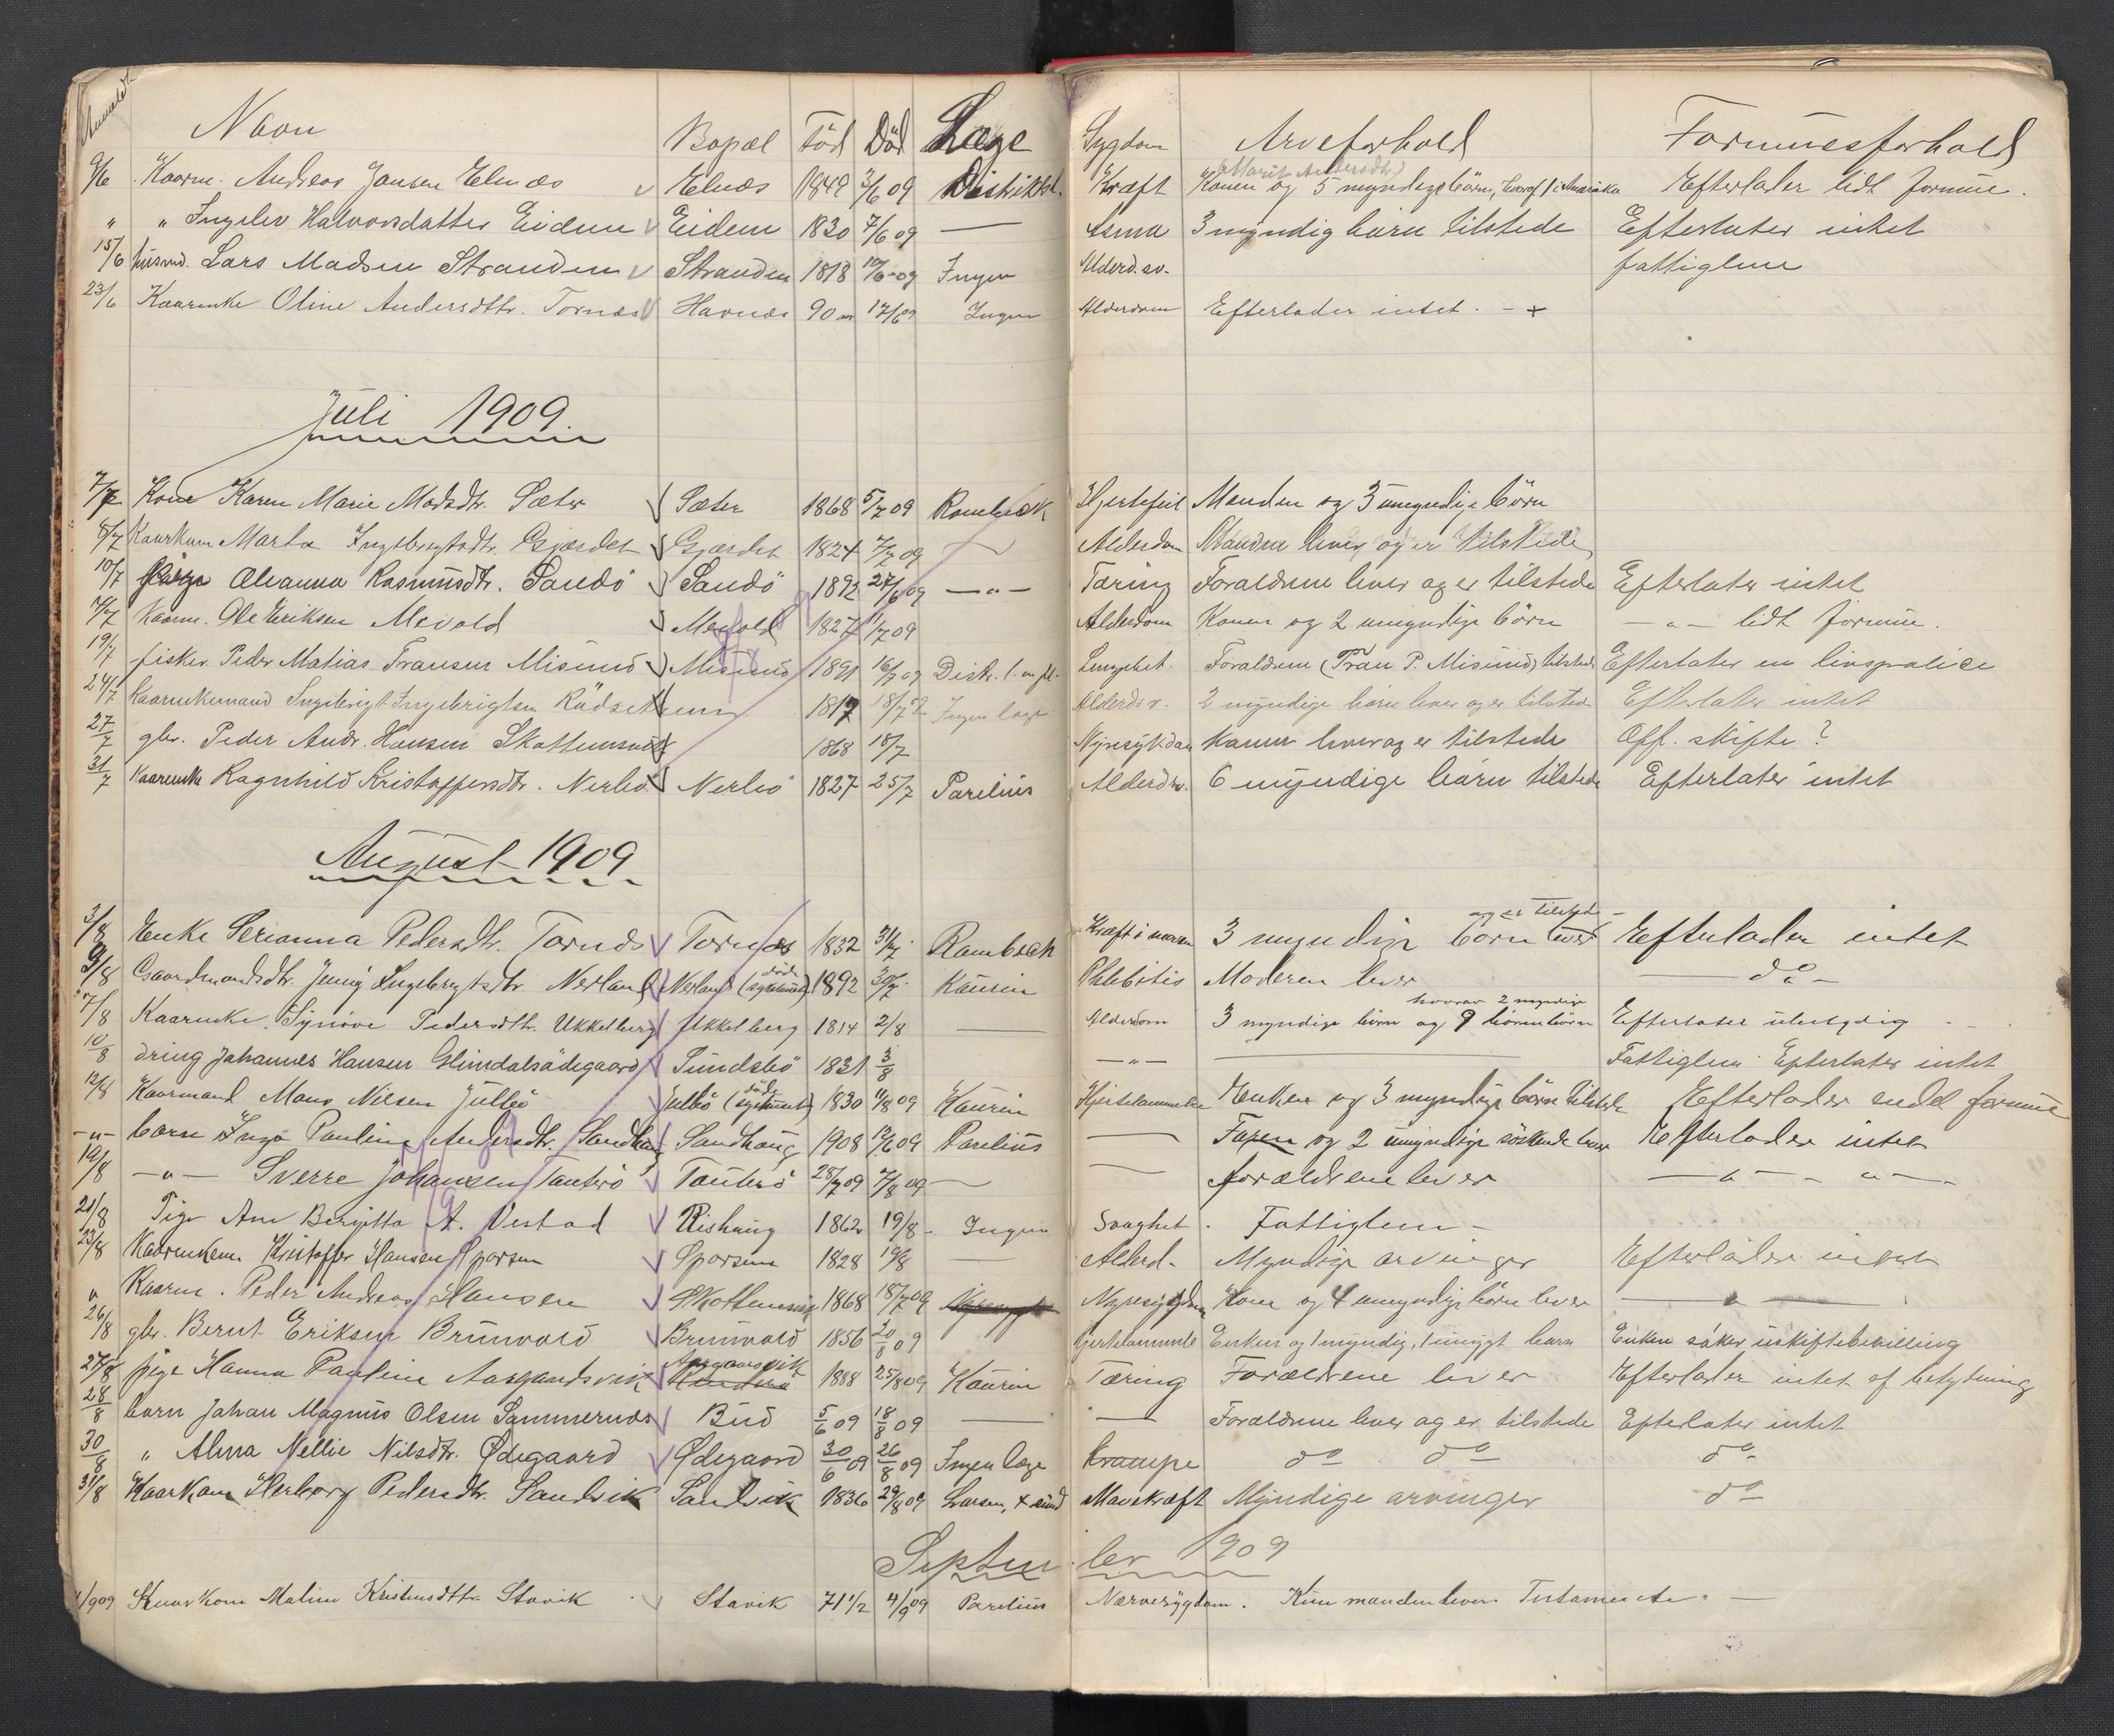 Anmeldt Navn Bopæl Föd Död Læge Sygdom Arveforhold Formuesforhold
(Marit Andersdtr)
9/6 Kaarm. Andreas Jansen Elnæs Elnæs 1849 3/6 09 Distriktsl. Kræft Konen og 5 myndige börn, hvoraf 1 i Amerika Efterlader lidt formue.
" " Ingelev Halvorsdatter Eidem Eidem 1830 7/6 09 — Asma 3 myndig barn tilstede Efterlater intet
15/6 husmd. Lars Madsen Stranden Stranden 1818 10/6 09 Ingen Alderd.sv. fattiglem
23/6 Kaarenke Oline Andersdttr. Tornæs Havnæs 90 aar 17/6 09 Ingen Alderdom Efterlader intet. - +
Juli 1909.
7/7 Kone Karen Marie Madsdtr. Sæter Sæter 1868 5/7 09 Rambech Hjertefeil Manden og 5 umyndige börn
8/7 Kaarkone Marta Ingebrigtsdtr. Gjærdet Gjærdet 1824 7/7 09 — Alderdom Manden lever og er tilstede
10/7 Pige Oleanna Rasmusdtr. Sandö Sandö 1892 27/6 09 —"— Tæring Forældrene lever og er tilstede Efterlater intet
14/7 Kaarm. Ole Eriksen Mevold Mevold 1827 11/7 09 Alderdom Konen og 2 umyndige börn —"— lidt formue.
19/7 fisker Peder Matias Transen Misund Misund 1891 16/7 09 Distr. l. Forældrene (Tran P. Misund) tilstede Efterlater en livspolice
24/7 Kaarenkemand Ingebrigt Ingebrigtsen Rödsetreem 1817 18/7 Ingen læge Alderd.sv. 2 myndige barn lever og er tilstede Efterlater intet
27/7 gbr. Peder Andr. Hansen Skottemsvik 1868 18/7 Nyresykdom Konen lever og er tilstede Off. skifte?
31/7 Kaarenke Ragnhild Kristoffersdtr. Nerbö Nerbö 1827 25/7 Parelius Alderdsv. 6 myndige barn tilstede Efterlater intet
August 1909
og er tilstede
3/8 Enke Serianna Pedersdtr. Tornæs Tornæs 1832 31/7 Rambech Kræft i maven 3 myndige börn lever Efterlader intet
9/8 Gaardmandsdtr. Jenny Ingebrigtsdtr. Nerland Nerland (död sygehuset) 1892 30/7 Kaurin Phlebitis Moderen lever — do —
hvorav 2 myndige
7/8 Kaarenke Synöve Pedersdtr. Ukkelberg Ukkelberg 1814 2/8 — Alderdom 3 myndige börn og 9 börnebörn Efterlater ubetydelig
10/8 dreng Johannes Hansen Hlindalsödegaard Sundsbö 1831 3/8 —"— — Fattiglem. Efterlater intet
12/8 Kaarmand Mons Nilsen Julbö Julbö (död sygehuset) 1830 11/8 09 Kaurin Hjertelammelse Enken og 3 myndige börn tilstede Efterlader endel formue
—"— barn Inga Pauline Andersdtr. Sandhaug Sandhaug 1908 12/6 09 Parelius — Faren og 2 umyndige söskende lever Efterlader intet
19/8 —"— Sverre Johansen Tautrö Tauterö 28/7 09 7/8 09 — — forældrene lever —"— —"—
21/8 Pige Ane Berytta A. Vestad Rishaug 1862 19/8 Ingen Svaghet Fattiglem —
23/8 Kaarenkem. Kristoffer Hansen Sporsem Sporsem 1828 19/8 — Alderd. Myndige arvinger Efterlader intet
" Kaarm. Peder Andreas Hansen Skottemsvig 1868 18/7 09 Nyresygdom Kone og 4 umyndige börn lever —"—
26/8 gbr. Bernt Eriksen Brunvold Brunvold 1856 20/8 09 Hjertelammelse Enken og 1 myndig, 1 umygt barn Enken söker uskiftebevilling
Aasgaardsvik
27/8 pige Hanna Pauline Aasgaardsvik 1888 25/8 09 Kaurin Tæring Forældrene lever Efterlader intet af betydning
28/8 barn Johan Magnus Olsen Sammernæs Bud 5/6 09 18/8 09 — — Forældrene lever og er tilstede Efterlater intet
30/8 " Alma Nellie Nilsdtr. Ødegaard Ødegaard 30/6 09 26/8 09 Ingen læge Krampe do do do
31/8 Kaarkone Herborg Pedersdtr. Sandvik Sandvik 1836 29/8 09 Larsen, Mavekræft Myndige arvinger do
September 1909
Kaarkone Maline Kristensdttr. Stavik Stavik 71 1/2 4/9 09 Parelius Nervesygdom. Kun manden lever. Testamente. —